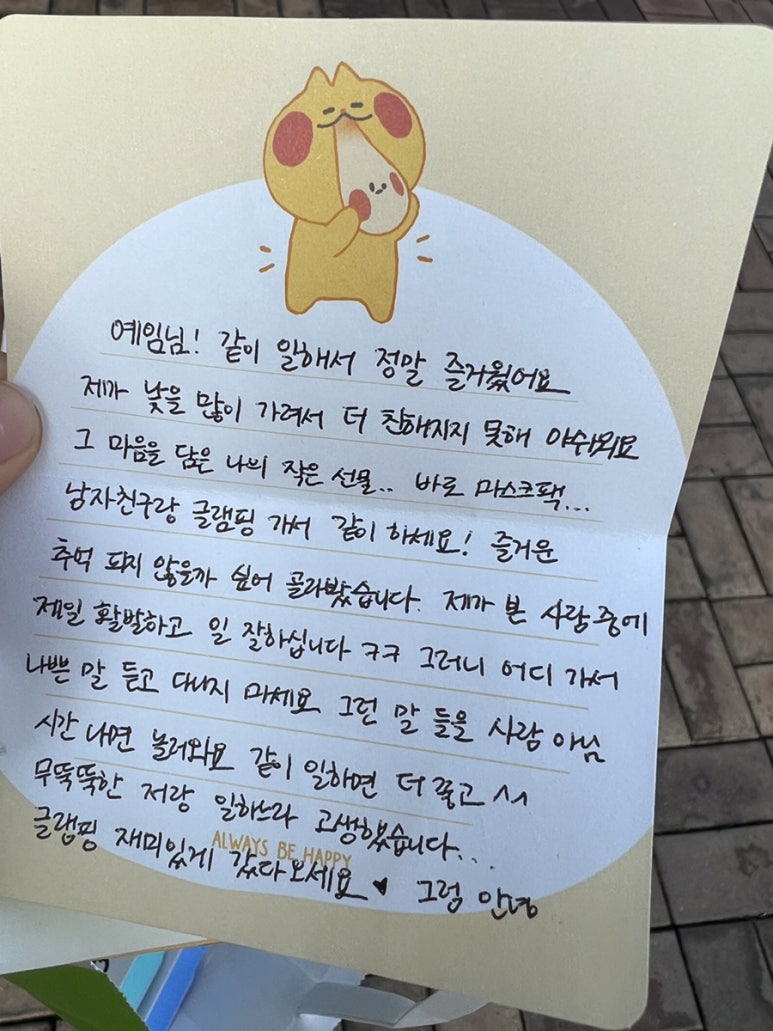 예임님! 같이 일해서 정말 즐거웠어요
제가 낯을 많이 가려서 더 친해지지 못해 아쉬워요
그 마음을 담은 나의 작은 선물.. 바로 마스크팩...
남자친구랑 글램핑 가서 같이 하세요! 즐거운
추억 되지 않을까 싶어 골라봤습니다. 제가 본 사람 중에
제일 활발하고 일 잘하십니다 ㅋㅋ 그러니 어디 가서
나쁜 말 듣고 다니지 마세요 그런 말 들을 사람 아님
시간 나면 놀러와요 같이 일하면 더 좋고 ^^
무뚝뚝한 저랑 일하느라 고생했습니다...
ALWAYS BE HAPPY
글램핑 재미있게 갔다오세요 ♥ 그럼 안녕